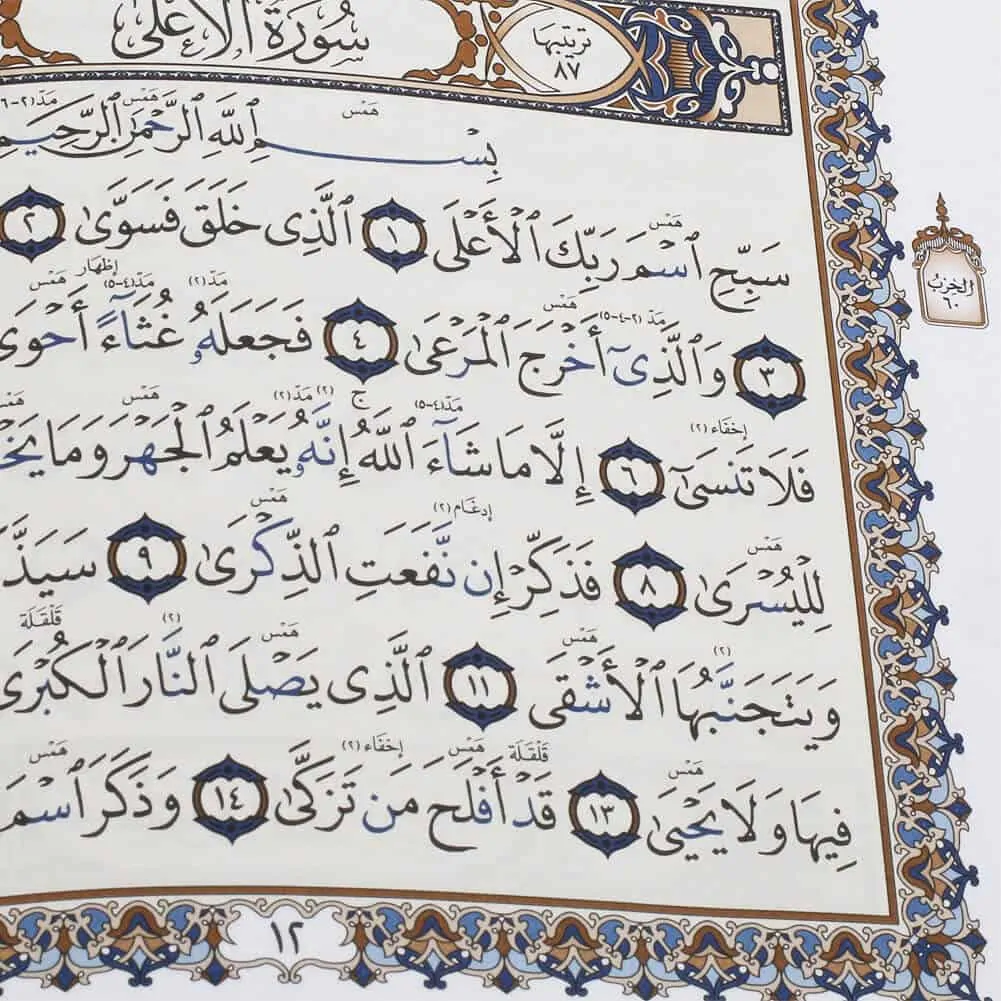 سُورَةُ الأَعْلَى
ترتيبها
٨٧
مَدّ (٢-٦ هَمْس هَمْس
بِسْمِ اللَّهِ الرَّحْمَٰنِ الرَّحِيمِ
هَمْس
سَبِّحِ ٱسْمَ رَبِّكَ ٱلْأَعْلَى ١ ٱلَّذِى خَلَقَ فَسَوَّىٰ ٢
الحِزبُ
٦٠
مَدّ (٢-٤-٥) هَمْس مَدّ (٢) مَدّ (٤-٥) هَمْس إظهار
٣ وَٱلَّذِىٓ أَخْرَجَ ٱلْمَرْعَىٰ ٤ فَجَعَلَهُۥ غُثَآءً أَحْوَىٰ
إخفاء (٢) مَدّ (٤-٥) ج (٢) مَدّ (٢) هَمْس
فَلَا تَنسَىٰٓ ٦ إِلَّا مَا شَآءَ ٱللَّهُ إِنَّهُۥ يَعْلَمُ ٱلْجَهْرَ وَمَا يَخْ
هَمْس إدغام (٢) هَمْس
لِلْيُسْرَىٰ ٨ فَذَكِّرْ إِن نَّفَعَتِ ٱلذِّكْرَىٰ ٩ سَيَذَّ
(٢) هَمْس هَمْس (٢) قَلْقَلَة
وَيَتَجَنَّبُهَا ٱلْأَشْقَى ١١ ٱلَّذِى يَصْلَى ٱلنَّارَ ٱلْكُبْرَىٰ
هَمْس قَلْقَلَة هَمْس إخفاء (٢) هَمْس
فِيهَا وَلَا يَحْيَىٰ ١٣ قَدْ أَفْلَحَ مَن تَزَكَّىٰ ١٤ وَذَكَرَ ٱسْمَ
١٢